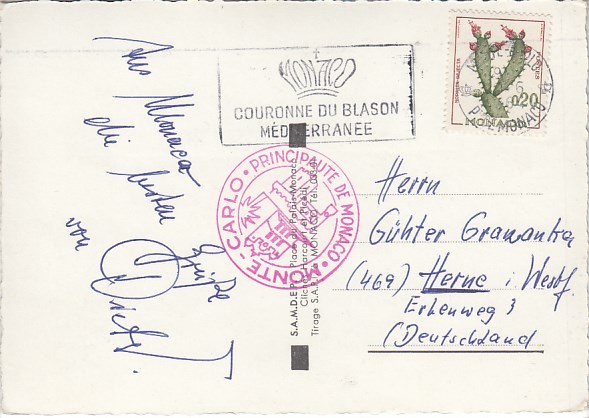 Aus Monaco
die besten
Grüße
von
MONACO
COURONNE DU BLASON
MÉDITERRANÉE
0,20
MONACO
PRINCIPAUTE DE MONACO • MONTE-CARLO •
S.A.M.D.E.P. Place du Palais-Monaco
Tirage S.A.R. MONACO Tél.
Herrn
Gühter Gramanka
(469) Herne i. Westf
Erlenweg 3
(Deutschland